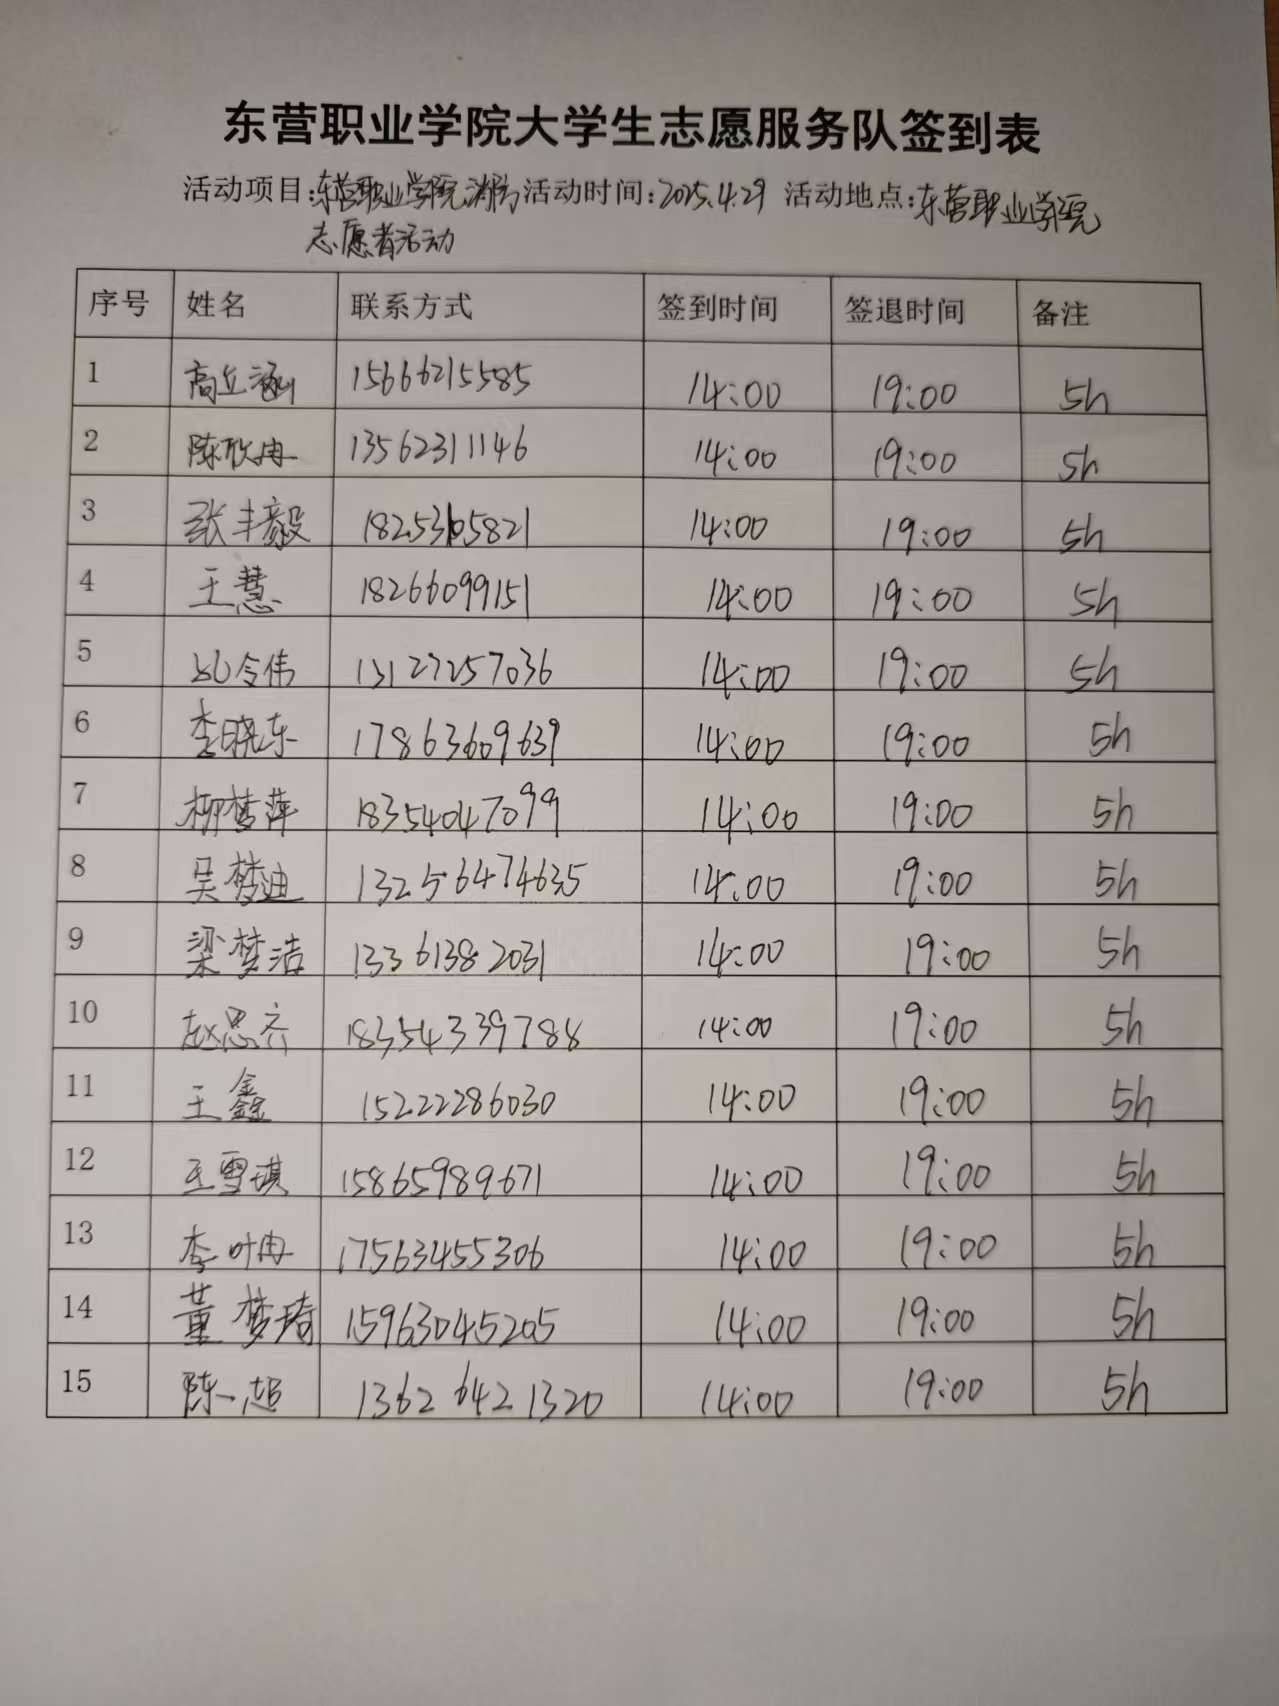 东营职业学院大学生志愿服务队签到表
活动项目:东营职业学院消防 活动时间:2025.4.29 活动地点:东营职业学院
志愿者活动
序号 姓名 联系方式 签到时间 签退时间 备注
1 高立涵 15666215585 14:00 19:00 5h
2 陈欣冉 13562311146 14:00 19:00 5h
3 张丰毅 18253105821 14:00 19:00 5h
4 王慧 18266099151 14:00 19:00 5h
5 令伟 13127257036 14:00 19:00 5h
6 李晓东 17863609639 14:00 19:00 5h
7 柳梦萍 18354047099 14:00 19:00 5h
8 吴梦迪 13256474635 14:00 19:00 5h
9 梁梦洁 13361382031 14:00 19:00 5h
10 赵思齐 18354339788 14:00 19:00 5h
11 王鑫 15222286030 14:00 19:00 5h
12 王雪琪 15865989671 14:00 19:00 5h
13 李叶冉 17563455306 14:00 19:00 5h
14 董梦琦 15963045205 14:00 19:00 5h
15 陈一超 13626421320 14:00 19:00 5h